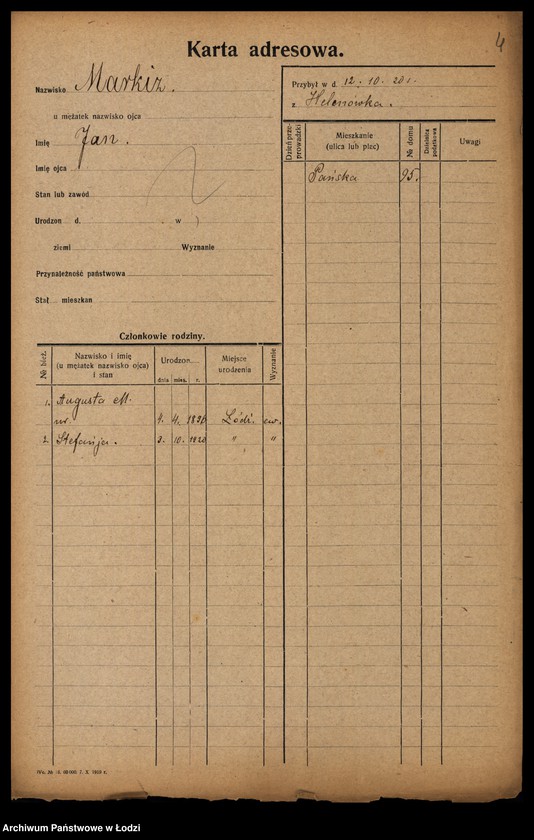 4
Karta adresowa.
Nazwisko Markiz.
u mężatek nazwisko ojca
Imię Jan.
Imię ojca
Stan lub zawód
Urodzon d. w
ziemi Wyznanie
Przynależność państwowa
Stał mieszkan
Członkowie rodziny.
№ bież. Nazwisko i imię (u mężatek nazwisko ojca) i stan Urodzon dnia mies. r. Miejsce urodzenia Wyznanie
1. Augusta M.
ur. 9. 4. Łódź. ew.
2. Stefanja. 3. 10. 1920 " "
Przybył w d. 12. 10. 20 r.
z Helenówka.
Dzień przeprowadzki Mieszkanie (ulica lub plac) № domu Dzielnica podatkowa Uwagi
Pańska 95.
Archiwum Państwowe w Łodzi